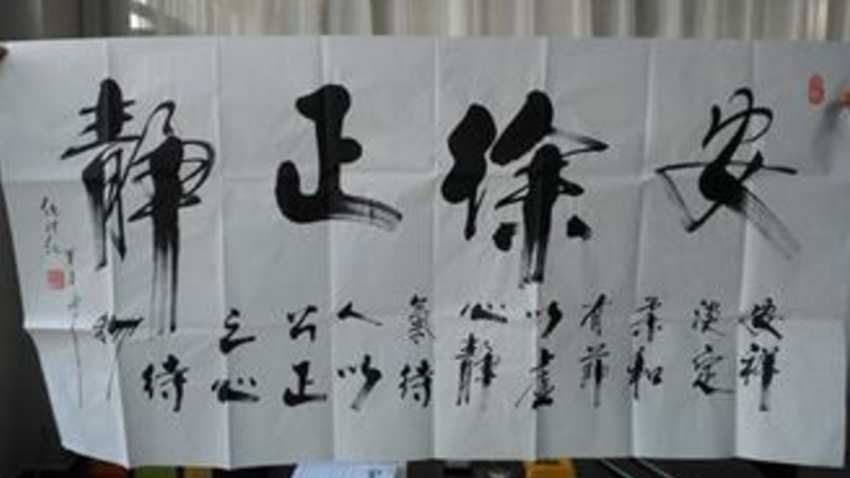 安徐正静
安祥
淡定
柔和
有节
以虚
心静
氣待
人以
公正
之心
待
物